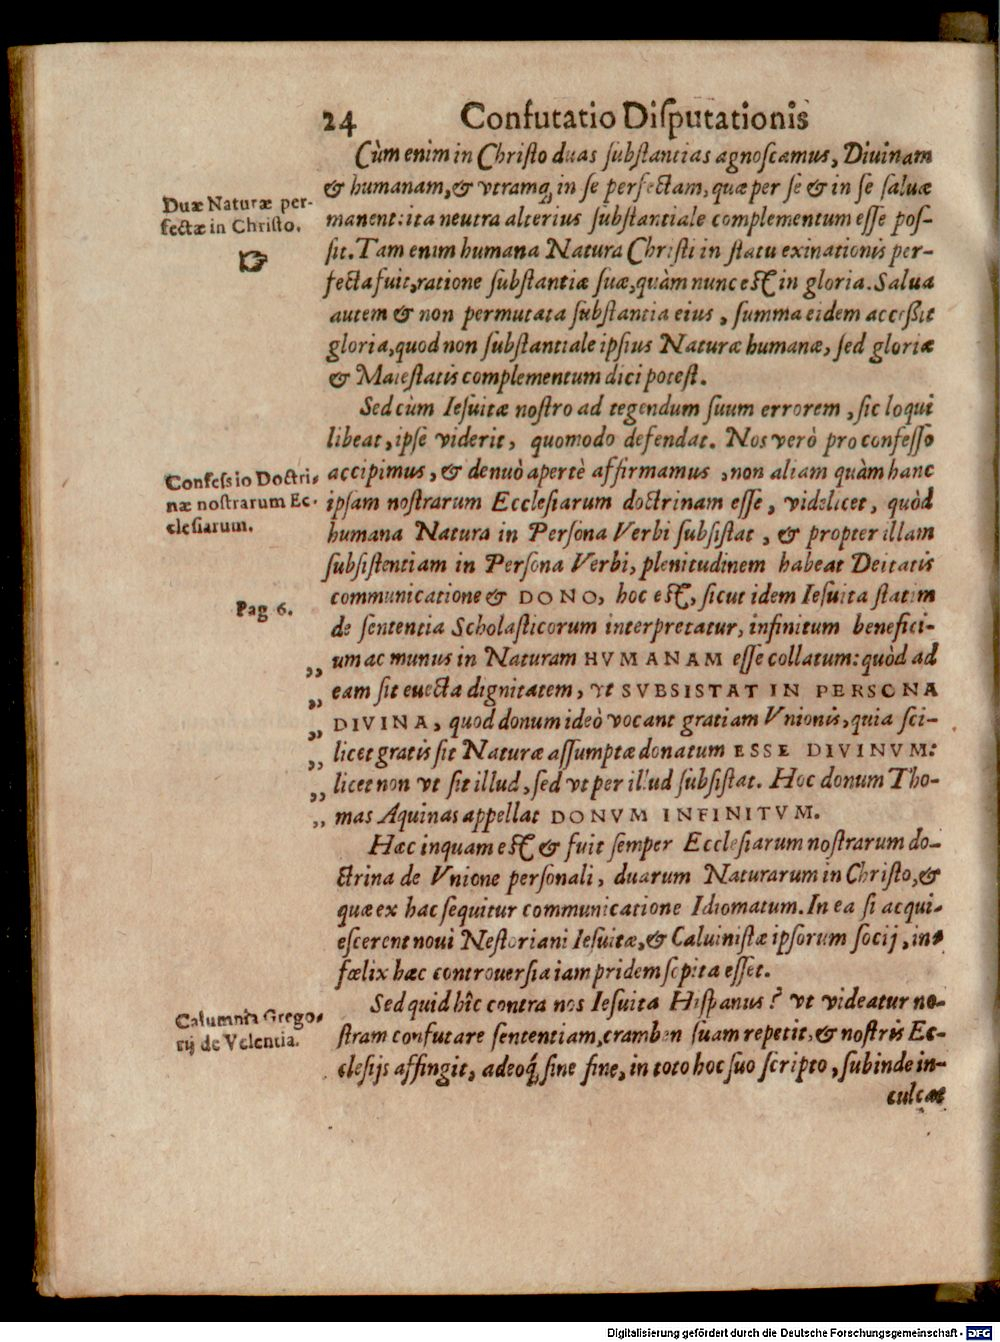 24 Confutatio Diſputationis
Cùm enim in Chriſto duas ſubſtantias agnoſcamus, Diuinam
& humanam, & vtramq́; in ſe perfectam, quæ per ſe & in ſe ſaluæ
manent: ita neutra alterius ſubſtantiale complementum eſſe poſ-
ſit. Tam enim humana Natura Chriſti in ſtatu exinationis per-
fecta fuit, ratione ſubſtantiæ ſuæ, quàm nunc eſt in gloria. Salua
autem & non permutata ſubſtantia eius, ſumma eidem acceſſit
gloria, quod non ſubſtantiale ipſius Naturæ humanæ, ſed gloriæ
& Maieſtatis complementum dici poteſt.
Duæ Naturæ per-
fectæ in Chriſto.
☞
Sed cùm Ieſuitæ noſtro ad tegendum ſuum errorem, ſic loqui
libeat, ipſe viderit, quomodo defendat. Nos verò pro confeſſo
accipimus, & denuò apertè affirmamus, non aliam quàm hanc
ipſam noſtrarum Eccleſiarum doctrinam eſſe, videlicet, quòd
humana Natura in Perſona Verbi ſubſiſtat, & propter illam
ſubſiſtentiam in Perſona Verbi, plenitudinem habeat Deitatis
communicatione & DONO, hoc eſt, ſicut idem Ieſuita ſtatim
de ſententia Scholaſticorum interpretatur, infinitum benefici-
,, um ac munus in Naturam HVMANAM eſſe collatum: quòd ad
,, eam ſit euecta dignitatem, vt SVBSISTAT IN PERSONA
,, DIVINA, quod donum ideò vocant gratiam Vnionis, quia ſci-
,, licet gratis ſit Naturæ aſſumptæ donatum ESSE DIVINVM:
,, licet non vt ſit illud, ſed vt per illud ſubſiſtat. Hoc donum Tho-
,, mas Aquinas appellat DONVM INFINITVM.
Confeſsio Doctri-
næ noſtrarum Ec-
cleſiarum.
Pag 6.
Hæc inquam eſt & fuit ſemper Eccleſiarum noſtrarum do-
ctrina de Vnione perſonali, duarum Naturarum in Chriſto, &
quæ ex hac ſequitur communicatione Idiomatum. In ea ſi acqui-
eſcerent noui Neſtoriani Ieſuitæ, & Caluiniſtæ ipſorum ſocij, in-
fœlix hæc controuerſia iam pridem ſopita eſſet.
Sed quid hîc contra nos Ieſuita Hiſpanus? vt videatur no-
ſtram confutare ſententiam, cramben ſuam repetit, & noſtris Ec-
cleſijs affingit, adeoq́; ſine fine, in toto hoc ſuo ſcripto, ſubinde in-
culcat
Calumnia Grego-
rij de Velentia.
Digitalisierung gefördert durch die Deutsche Forschungsgemeinschaft - DFG